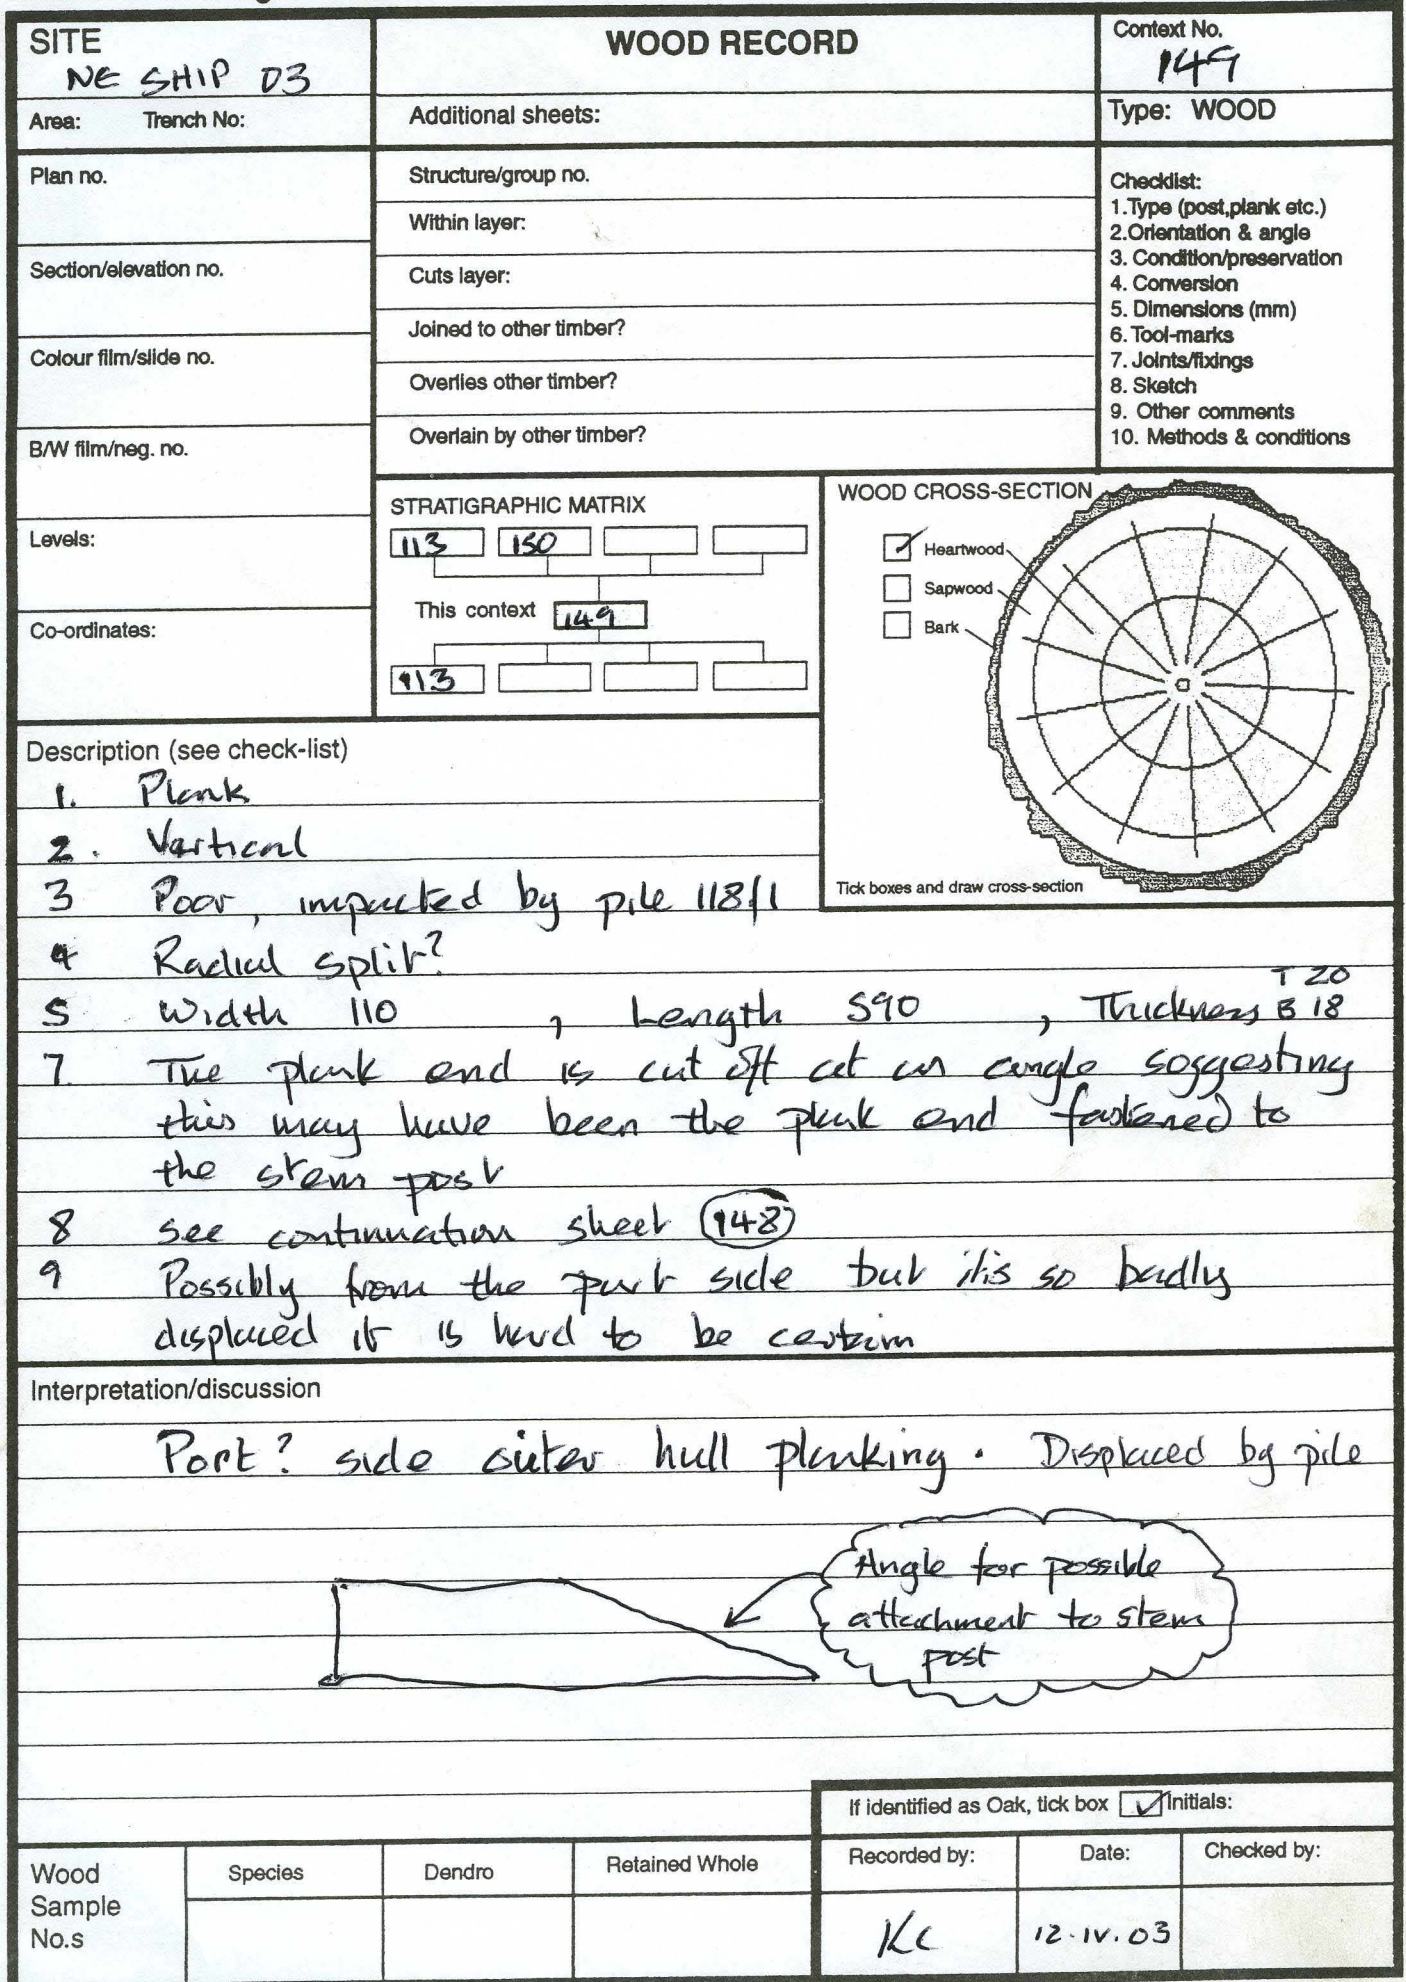 SITE
NE SHIP 03
WOOD RECORD
Context No.
149
Area: Trench No:
Additional sheets:
Type: WOOD
Plan no.
Section/elevation no.
Colour film/slide no.
B/W film/neg. no.
Levels:
Co-ordinates:
Structure/group no.
Within layer:
Cuts layer:
Joined to other timber?
Overlies other timber?
Overlain by other timber?
Checklist:
1.Type (post,plank etc.)
2.Orientation & angle
3. Condition/preservation
4. Conversion
5. Dimensions (mm)
6. Tool-marks
7. Joints/fixings
8. Sketch
9. Other comments
10. Methods & conditions
STRATIGRAPHIC MATRIX
113 150
This context 149
113
WOOD CROSS-SECTION
Heartwood
Sapwood
Bark
Tick boxes and draw cross-section
Description (see check-list)
1. Plank
2. Vertical
3 Poor, impacted by pile 118/1
4 Radial split?
5 Width 110 , Length 590 , Thickness T 20 B 18
7. The plank end is cut off at an angle soggesting
this may have been the plank end fastened to
the stem post
8 see continuation sheet 148
9 Possibly from the port side but it's so badly
displaced it is hard to be certain
Interpretation/discussion
Port? side outer hull planking. Displaced by pile
Angle for possible
attachment to stem
post
If identified as Oak, tick box Initials:
Wood
Sample
No.s
Species
Dendro
Retained Whole
Recorded by:
KC
Date:
12.IV.03
Checked by: